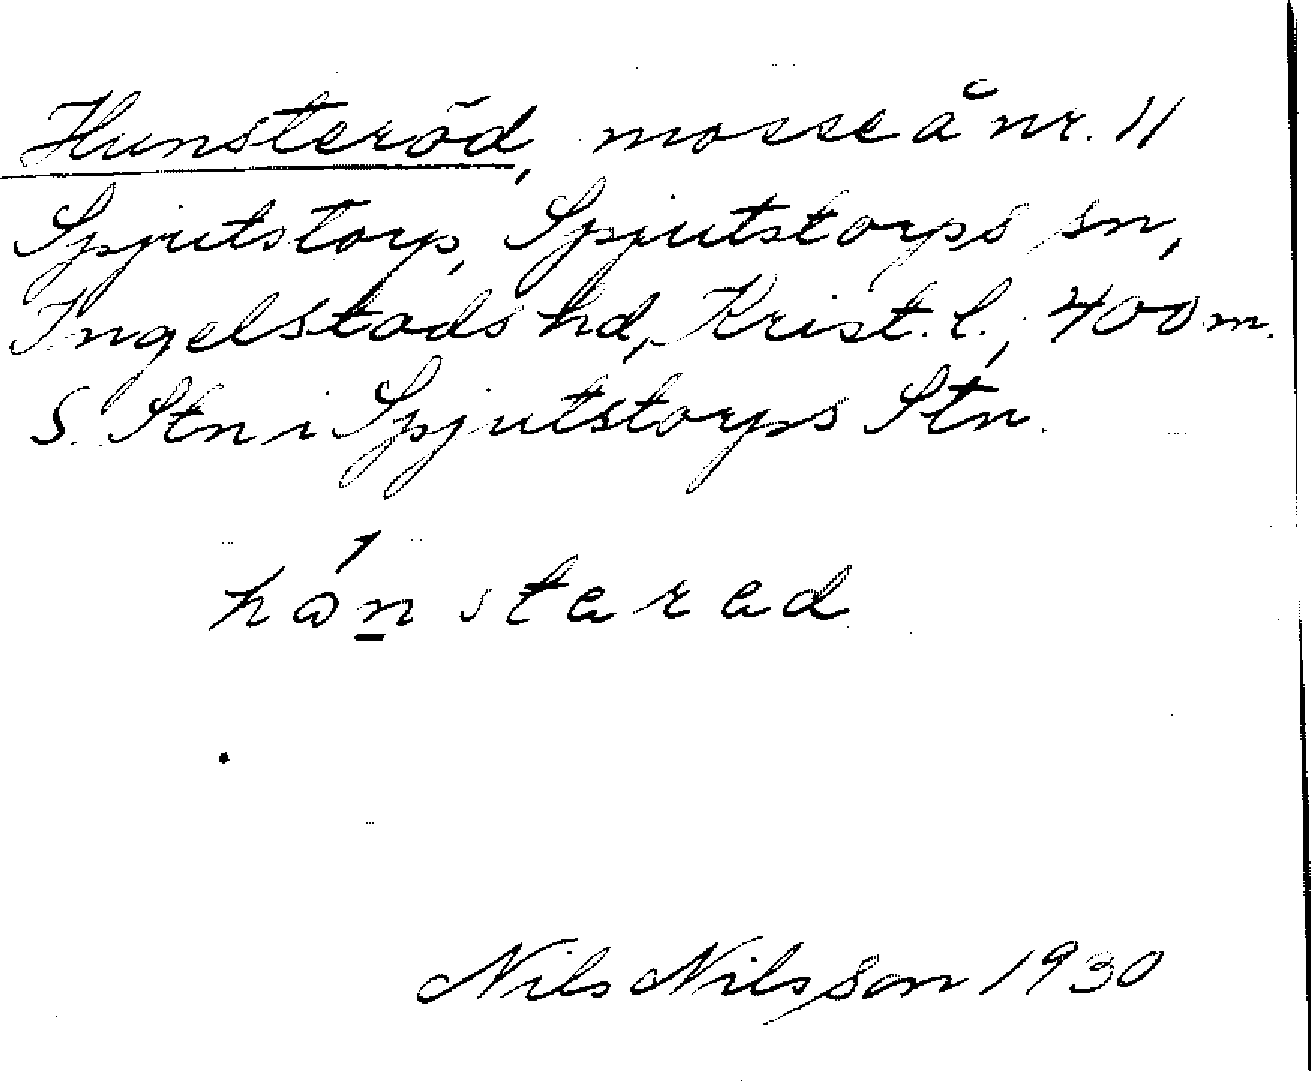 Hunsteröd, mosse å nr. 11
Spjutstorp, Spjutstorps sn,
Ingelstads hd, Krist. l., 400 m.
S. Stn i Spjutstorps Stn.
hånstarad
Nils Nilsson 1930